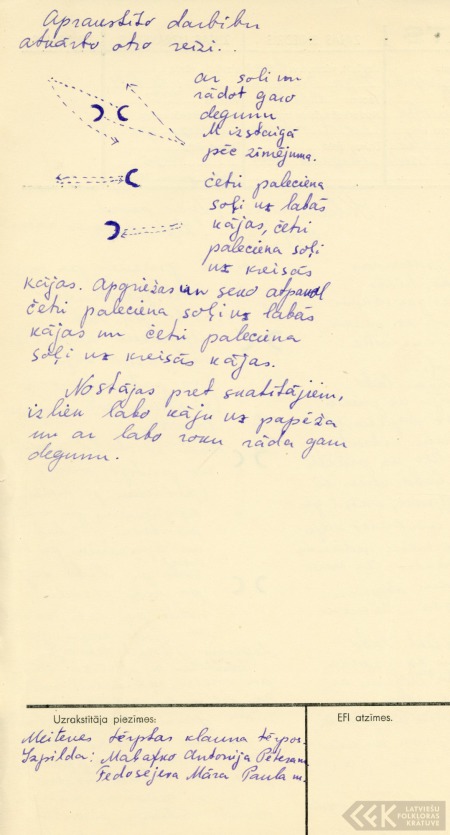 Apraustīto darbību
atkārto otro reizi..
ar soli un
rādot garo
degunu
M izstaigā
pēc zīmējuma.
četri paleciena
soļi uz labās
kājas, četri
paleciena soļi
uz kreisās
kājas. Apgriežas un seko atpakaļ
četri paleciena soļi uz labās
kājas un četri paleciena
soļi uz kreisās kājas.
Nostājas pret skatītājiem,
izliek labo kāju uz papēža
un ar labo roku rāda garu
degunu.
Uzrakstītāja piezīmes:
EFI atzīmes.
Meitenes tērptas klauna tērpos.
Izpilda: Antonija Pētera m.
Fedosejeva Māra Paula m.
LATVIEŠU
FOLKLORAS
KRĀTUVE